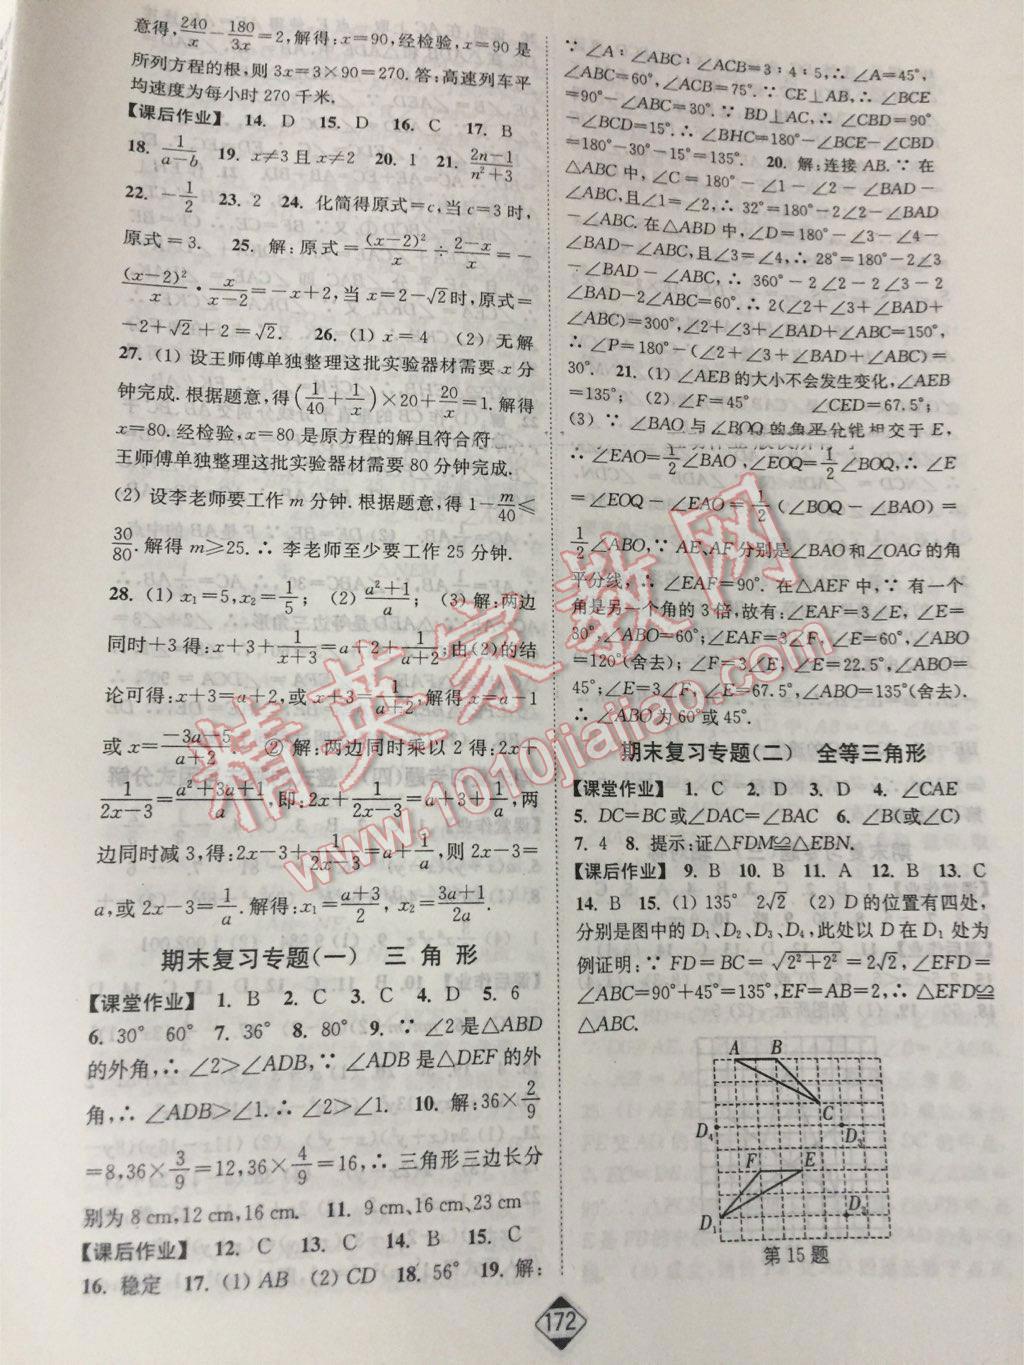 意得,240/x-180/3x=2,解得:x=90,经检验,x=90是
所列方程的根,则3x=3×90=270.答:高速列车平
均速度为每小时270千米.
【课后作业】 14. D 15. D 16. C 17. B
18. 1/(a-b) 19. x≠3且x≠2 20. 1 21. (2n-1)/(n²+3)
22. -1/2 23. 2 24. 化简得原式=c,当c=3时,
原式=3. 25. 解:原式=(x-2)²/x÷(2-x)/x=-
(x-2)²/x·x/(x-2)=-x+2,当x=2-√2时,原式=
-2+√2+2=√2. 26. (1) x=4 (2) 无解
27. (1) 设王师傅单独整理这批实验器材需要x分
钟完成.根据题意,得(1/40+1/x)×20+20/x=1.解得
x=80.经检验,x=80是原方程的解且符合
王师傅单独整理这批实验器材需要80分钟完成.
(2) 设李老师要工作m分钟.根据题意,得1-m/40≤
30/80.解得m≥25.∴ 李老师至少要工作25分钟.
28. (1) x₁=5,x₂=1/5; (2) (a²+1)/a; (3) 解:两边
同时+3得:x+3+1/(x+3)=a+2+1/(a+2);由(2)的结
论可得:x+3=a+2,或x+3=1/(a+2),解得x=a-1
或x=(-3a-5)/(a+2) ② 解:两边同时乘以2得:2x+
1/(2x-3)=(a²+3a+1)/a,即:2x+1/(2x-3)=a+3+1/a,两
边同时减3,得:2x-3+1/(2x-3)=a+1/a,则2x-3=
a,或2x-3=1/a.解得:x₁=(a+3)/2, x₂=(3a+1)/2a.
期末复习专题(一) 三角形
【课堂作业】 1. B 2. C 3. C 4. D 5. 6
6. 30° 60° 7. 36° 8. 80° 9. ∵ ∠2是△ABD
的外角,∴ ∠2>∠ADB,∵ ∠ADB是△DEF的外
角,∴ ∠ADB>∠1.∴ ∠2>∠1. 10. 解:36×2/9
=8,36×3/9=12,36×4/9=16,∴ 三角形三边长分
别为8 cm,12 cm,16 cm. 11. 9 cm,16 cm,23 cm
【课后作业】 12. C 13. C 14. B 15. C
16. 稳定 17. (1) AB (2) CD 18. 56° 19. 解:
∵ ∠A∶∠ABC∶∠ACB=3∶4∶5,∴ ∠A=45°,
∠ABC=60°,∠ACB=75°.∵ CE⊥AB,∴ ∠BCE
=90°-∠ABC=30°.∵ BD⊥AC,∴ ∠CBD=90°
-∠BCD=15°.∴ ∠BHC=180°-∠BCE-∠CBD=
180°-30°-15°=135°. 20. 解:连接AB.∵ 在
△ABC中,∠C=180°-∠1-∠2-∠BAD-
∠ABC,且∠1=∠2,∴ 32°=180°-2∠2-∠BAD
-∠ABC.在△ABD中,∠D=180°-∠3-∠4-
∠BAD-∠ABC,且∠3=∠4,∴ 28°=180°-2∠3
-∠BAD-∠ABC,∴ 360°-2∠2-2∠3-2
∠BAD-2∠ABC=60°,∴ 2(∠2+∠3+∠BAD+
∠ABC)=300°,∠2+∠3+∠BAD+∠ABC=150°,
∴ ∠P=180°-(∠2+∠3+∠BAD+∠ABC)=
30°. 21. (1) ∠AEB的大小不会发生变化,∠AEB
=135°; (2) ∠F=45° ∠CED=67.5°;
(3) ∵ ∠BAO与∠BOQ的角平分线相交于E,
∴ ∠EAO=1/2∠BAO,∠EOQ=1/2∠BOQ,∴ ∠E
=∠EOQ-∠EAO=1/2(∠BOQ-∠BAO)=
1/2∠ABO,∵ AE、AF分别是∠BAO和∠OAG的角
平分线,∴ ∠EAF=90°.在△AEF中,∵ 有一个
角是另一个角的3倍,故有:∠EAF=3∠E,∠E=
30°,∠ABO=60°;∠EAF=3∠F,∠E=60°,∠ABO
=120°(舍去);∠F=3∠E,∠E=22.5°,∠ABO=
45°;∠E=3∠F,∠E=67.5°,∠ABO=135°(舍去).
∴ ∠ABO为60°或45°.
期末复习专题(二) 全等三角形
【课堂作业】 1. C 2. D 3. D 4. ∠CAE
5. DC=BC或∠DAC=∠BAC 6. ∠B(或∠C)
7. 4 8. 提示:证△FDM≌△EBN.
【课后作业】 9. B 10. B 11. A 12. B 13. C
14. B 15. (1) 135° 2√2 (2) D的位置有四处,
分别是图中的D₁、D₂、D₃、D₄,此处以D在D₁处为
例证明:∵ FD=BC=√(2²+2²)=2√2,∠EFD
=∠ABC=90°+45°=135°,EF=AB=2,∴ △EFD≌
△ABC.
A B
C
D₄ D₃
F E
D₁ D₂
第15题
172
精英家教网
www.1010jiajiao.com